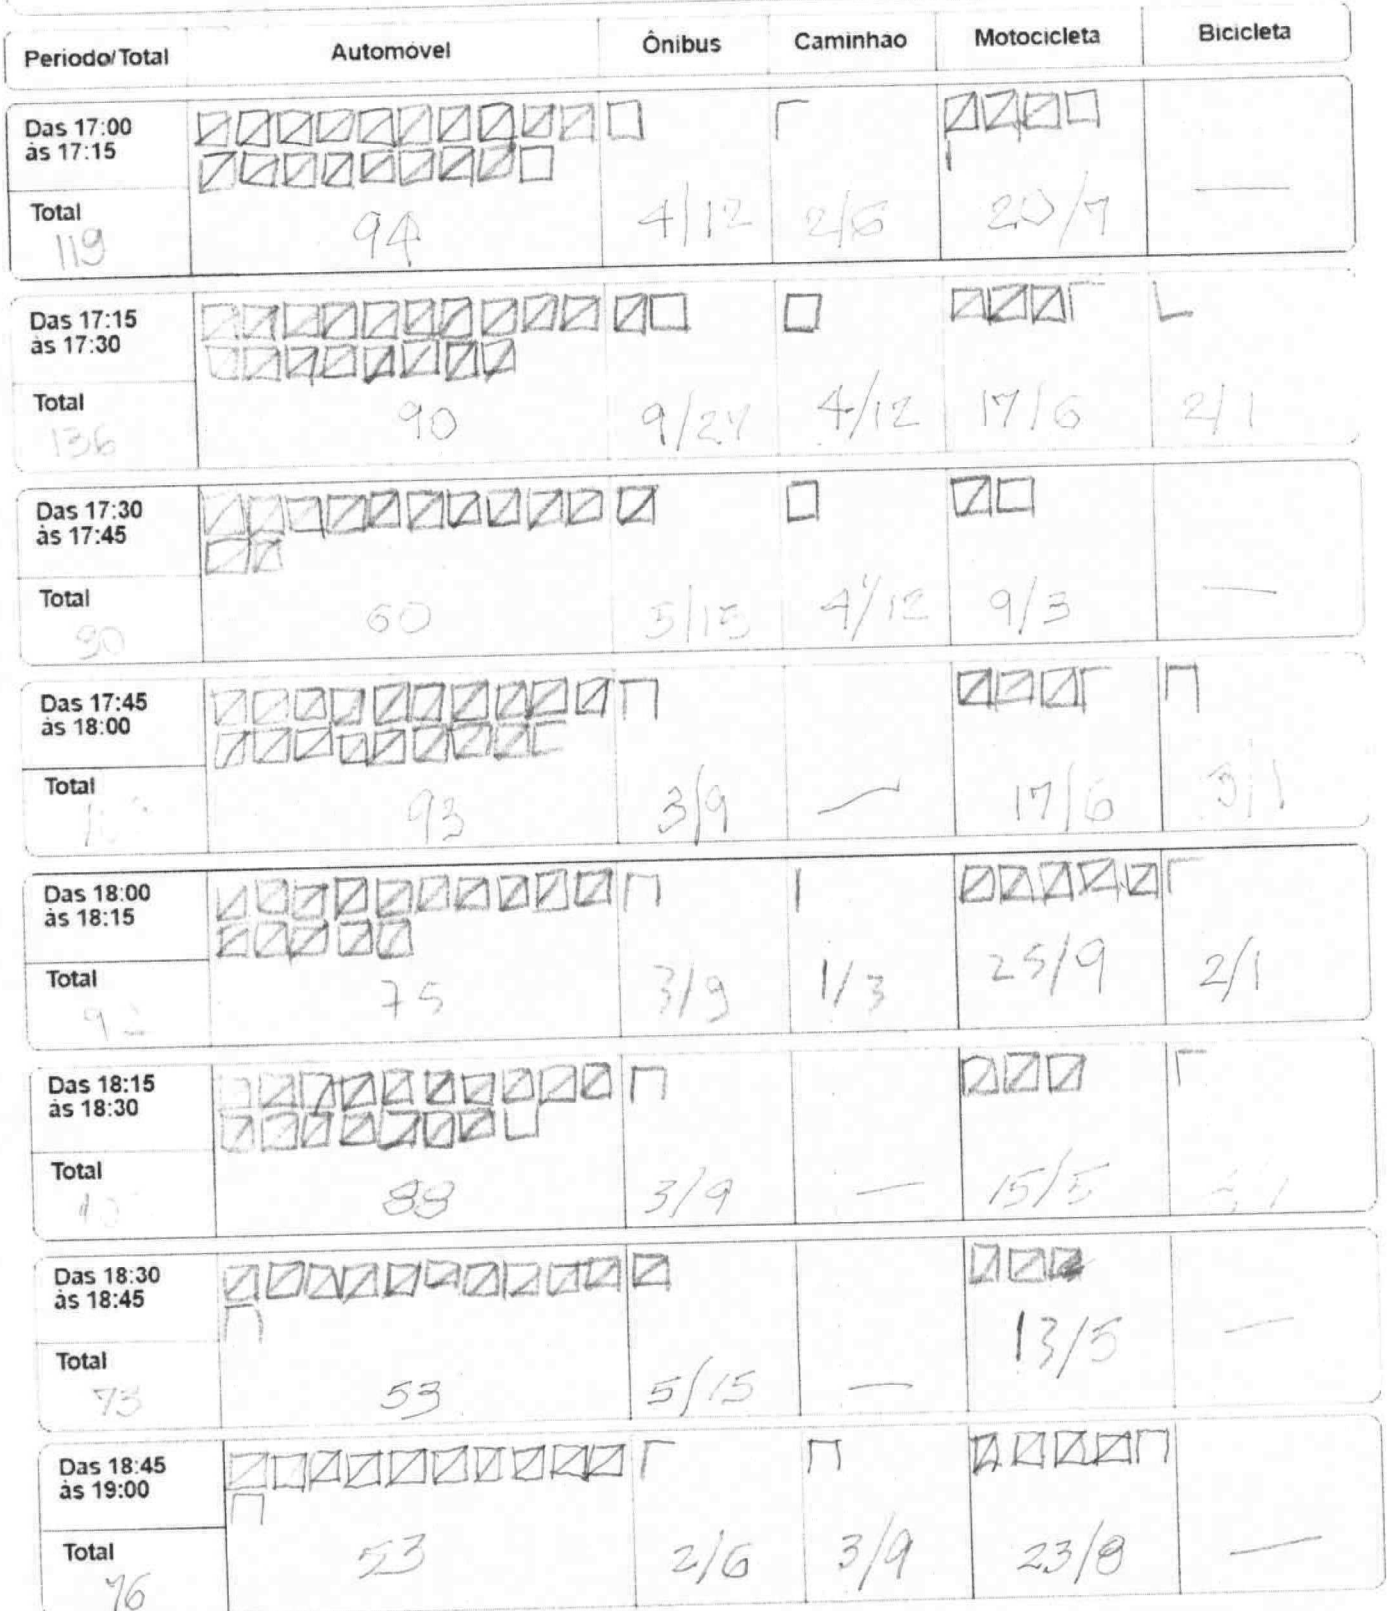 Periodo/Total Automóvel Ônibus Caminhão Motocicleta Bicicleta
Das 17:00
às 17:15
Total
119 94 4/12 2/6 20/7 —
Das 17:15
às 17:30
Total
136 90 9/27 4/12 17/6 2/1
Das 17:30
às 17:45
Total
90 60 5/15 4/12 9/3 —
Das 17:45
às 18:00
Total
93 3/9 — 17/6 3/1
Das 18:00
às 18:15
Total
75 3/9 1/3 25/9 2/1
Das 18:15
às 18:30
Total
88 3/9 — 15/5
Das 18:30
às 18:45
Total
73 53 5/15 — 13/5 —
Das 18:45
às 19:00
Total
76 53 2/6 3/9 23/8 —